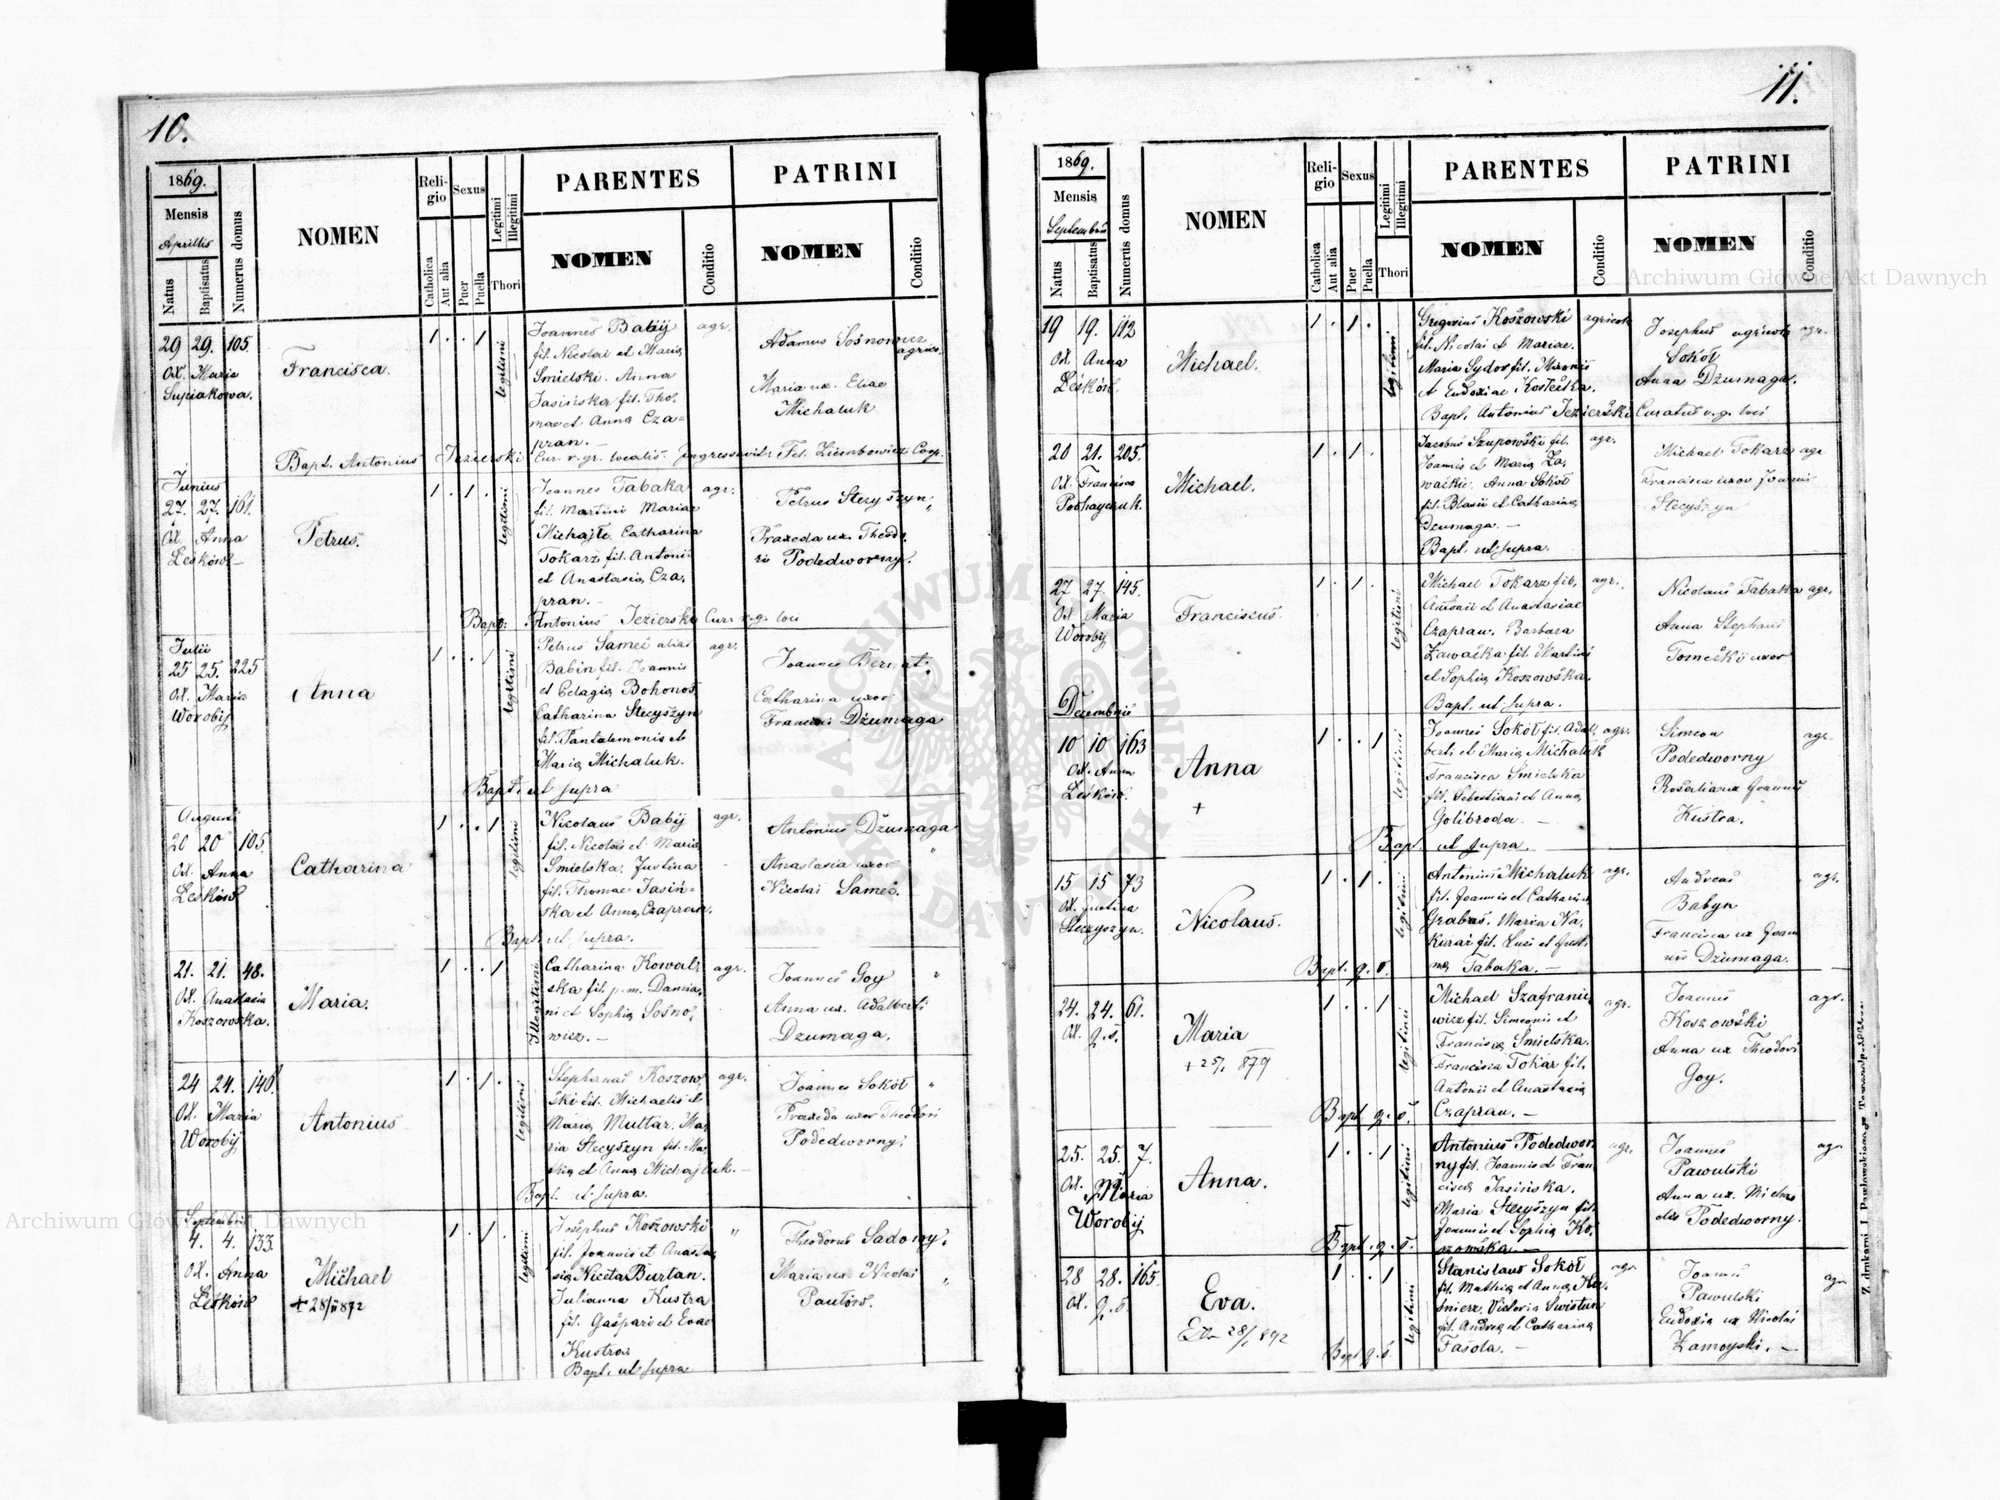 10.
1869.
Mensis
Aprillis
Natus
Baptisatus
Numerus domus
NOMEN
Religio
Catholica
Aut alia
Sexus
Puer
Puella
Legitimi
Illegitimi
Thori
PARENTES
NOMEN
Conditio
PATRINI
NOMEN
Conditio
29 29. 105.
Ox. Maria
Supiakowa.
Francisca.
1 . . 1
legitimi
Joannes Babij agr.
fil. Nicolai et Maria
Smielski. Anna
Jasińska fil. Tho
mae et Anna Cza=
pran. –
Adamus Sosnowicz
agric.
Maria ux. Eliae
Michaluk
Bapt. Antonius Jezierski Cur. r. gr. localis.
Junius
27. 27. 161.
Ox. Anna
Leśków
Petrus.
1 . 1 .
legitimi
Joannes Tabaka agr.
fil. Martini Mariae
Catharina
Tokarz fil. Antonii
et Anastasia Cza,
pran. –
Petrus Stecyszyn "
Praxeda ux. Theodo
ri Podedworny.
Bapt. Antonius Jezierski Cur. r. g. loci
Julii
25 25. 225
Ox. Maria
Worobij
Anna
1 . . 1
legitimi
Petrus Sameć alias agr.
Babin fil. Joannis
et Pelagia Bohonos.
Catharina Stecyszyn
fil. Pantalemonis et
Maria Michaluk.
Joannes Bernat "
Catharina uxor
Dżumaga
Bapt. ut supra
Augusti
20 20 105.
Ox. Anna
Leśków
Catharina
1 . . 1
legitimi
Nicolaus Babij agr.
fil. Nicolai et Maria
Smielska. Justina
fil. Thomae Jasiń=
ska et Anna Czapran.
Antonius Dżumaga
"
Anastasia uxor
Nicolai Sameć.
Bapt. ut supra.
21. 21. 48.
Ox. Anastasia
Koszowska.
Maria.
1 . . 1
Illegitimi
Catharina Kowal= agr.
ska fil. p.m. Damia,
ni et Sophia Sosno,
wicz. –
Joannes Goy "
Anna ux. Adalberti
Dzumaga.
24 24. 140.
Ox. Maria
Worobij
Antonius
1 . 1 .
legitimi
Stephanus Koszow agr.
ski fil. Michaelis et
Maria Muttar. Ma,
ria Stecyszyn fil.
et Anna Michajluk. –
Joannes Sokół "
Praxeda uxor Theodori
Podedworny.
Bapt. ut supra.
Septembris
4. 4. 133.
Ox. Anna
Leśków
Michael
+ 28/ 872
1 . 1 .
legitimi
Josephus Koszowski "
fil. Joannis et Anasta
sia Niceta Burtan.
Julianna Kustra
fil. Gaspari et Evae
Kustra
Bapt. ut supra
Theodorus Sadowy.
Maria ux. Nicolai "
Pautów.
11.
1869.
Mensis
Septembris
Natus
Baptisatus
Numerus domus
NOMEN
Religio
Catholica
Aut alia
Sexus
Puer
Puella
Legitimi
Illegitimi
Thori
PARENTES
NOMEN
Conditio
PATRINI
NOMEN
Conditio
19 19. 112
Ox Anna
Leśków.
Michael.
1 . 1 .
legitimi
Gregorius Koszowski agricola
fil. Nicolai et Mariae.
Maria Sydor fil. Mironis
et Eudoxiae
Josephus agricola agr.
Sokół
Anna Dżumaga.
Bapt. Antonius Jezierski Curatus r. g. loci
20 21. 205.
Ox. Francisca
Michael.
1 . 1 .
Jacobus Szupowski fil. agr.
Joannis et Maria Za,
wackie. Anna Sokół
fil. Blasii et Catharina
Dzumaga. –
Bapt. ut supra.
Michael Tokarz agr.
Francisca uxor Joannis
Stecyszyn
27 27. 145.
Ox Maria
Worobij
Franciscus.
1 . 1 .
legitimi
Michael Tokarz fil. agr.
Antonii et Anastasiae
Czapran. Barbara
Zawacka fil. Martini
et Sophia Koszowska.
Bapt. ut supra.
Nicolaus Tabaka agr.
Anna Stephani
Tomecki uxor
Decembris
10 10 163
Ox. Anna
Leśków.
Anna
+
1 . . 1
legitimi
Joannes Sokół fil. Adal, agr.
berti et Maria Michaluk
Francisca Smielska
fil. Sebestiani et Anna
Golibroda. –
Simeon agr.
Podedworny
Rosalia ux Joannis
Kustra.
Bapt. ut supra.
15 15 73
Ox. Justina
Stecyszyn.
Nicolaus.
1 . 1 .
legitimi
Antonius Michaluk agr.
fil. Joannis et Catharina
Grabas. Maria
fil. Luci et Justi
na Tabaka. –
Andreas agr.
Babyn
Francisca ux Joan
nis Dżumaga.
Bapt. q. s.
24. 24. 61.
Ox. q. s.
Maria
+ 25/ 879
1 . . 1
legitimi
Michael Szafranie agr.
wicz fil. Simeonis et
Francisca Smielska.
Francisca Tokar fil.
Antonii et Anastasia
Czapran. –
Joannes agr.
Koszowski
Anna ux Theodori
Goy.
Bapt. q. s.
25. 25. 7.
Ox. Maria
Worobij
Anna.
1 . . 1
legitimi
Antonius Podedwor agr.
ny fil. Joannis et Fran
cisca Jasińska.
Maria Stecyszyn fil.
Joannis et Sophia Ko
szowska –
Joannes agr
Pawulski
Anna ux. Micha
elis Podedworny.
Bapt. q. s.
28 28. 165.
Ox. q. s
Eva.
28/ 892
1 . . 1
legitimi
Stanislaus Sokół agr.
fil. Mathia et Anna
Victoria Swistun
fil. Andrea et Catharina
Fasola. –
Joannes agr.
Pawulski
Eudoxia ux Nicolai
Zamoyski. –
Bapt q. s.
Archiwum Główne Akt Dawnych
Archiwum Główne Akt Dawnych
ARCHIWUM GŁÓWNE AKT DAWNYCH